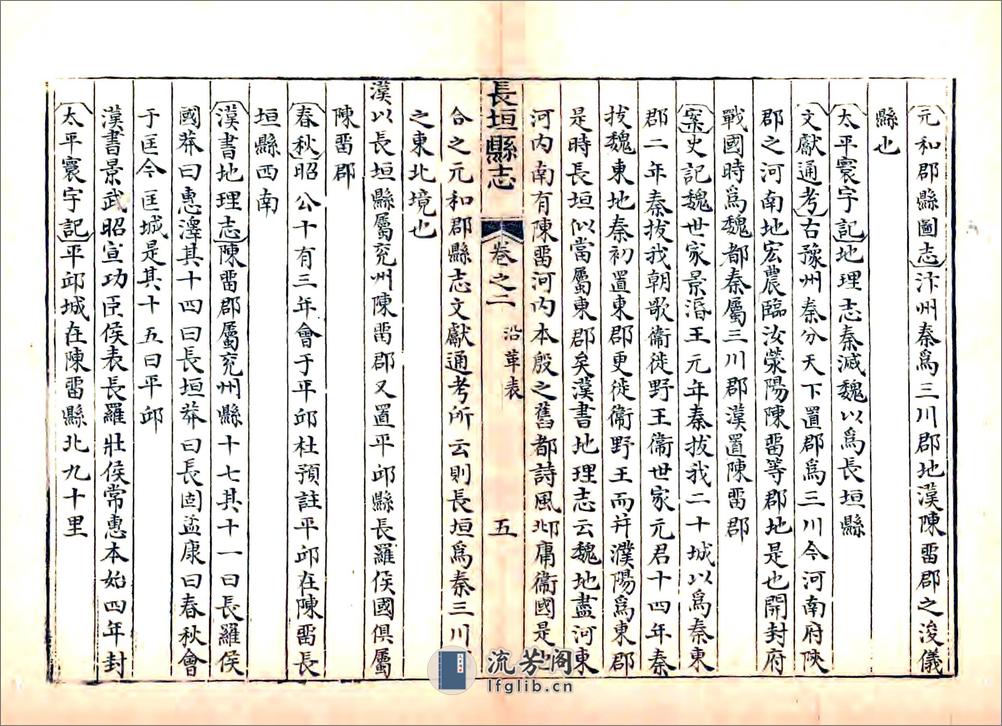 元和郡縣圖志汴州秦爲三川郡地漢陳畱郡之浚儀
縣也
太平寰宇記地理志秦減魏以爲長垣縣
文獻通考古豫州秦分天下置郡爲三川今河南府陜
郡之河南地宏農臨汝滎陽陳畱等郡地是也開封府
戰國時爲魏都秦屬三川郡漢置陳畱郡
案史記魏世家景湣王元年秦拔我二十城以爲秦東
郡二年秦拔我朝歌衞徙野王衞世家元君十四年秦
拔魏東地秦初置東郡更徙衞野王而幷濮陽爲東郡
是時長垣似當屬東郡矣漢書地理志云魏地盡河東
河内南有陳畱河内本殷之舊都詩風邶庸衞國是也
長垣縣志 卷之二 沿革表 五
合之元和郡縣志文獻通考所云則長垣爲秦三川
之東北境也
漢以長垣縣屬兖州陳畱郡又置平邱縣長羅侯國俱屬
陳畱郡
春秋昭公十有三年會于平邱杜預註平邱在陳畱長
垣縣西南
漢書地理志陳畱郡屬兖州縣十七其十一曰長羅侯
國莽曰惠澤其十四曰長垣莽曰長固孟康曰春秋會
于匡今匡城是其十五曰平邱
漢書景武昭宣功臣侯表長羅壯侯常惠本始四年封
太平寰宇記平邱城在陳畱縣北九十里
流芳阁
lfglib.cn